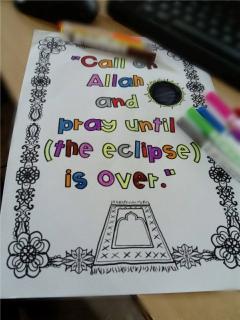 "Call on
Allah
and
pray until
(the eclipse)
is over."